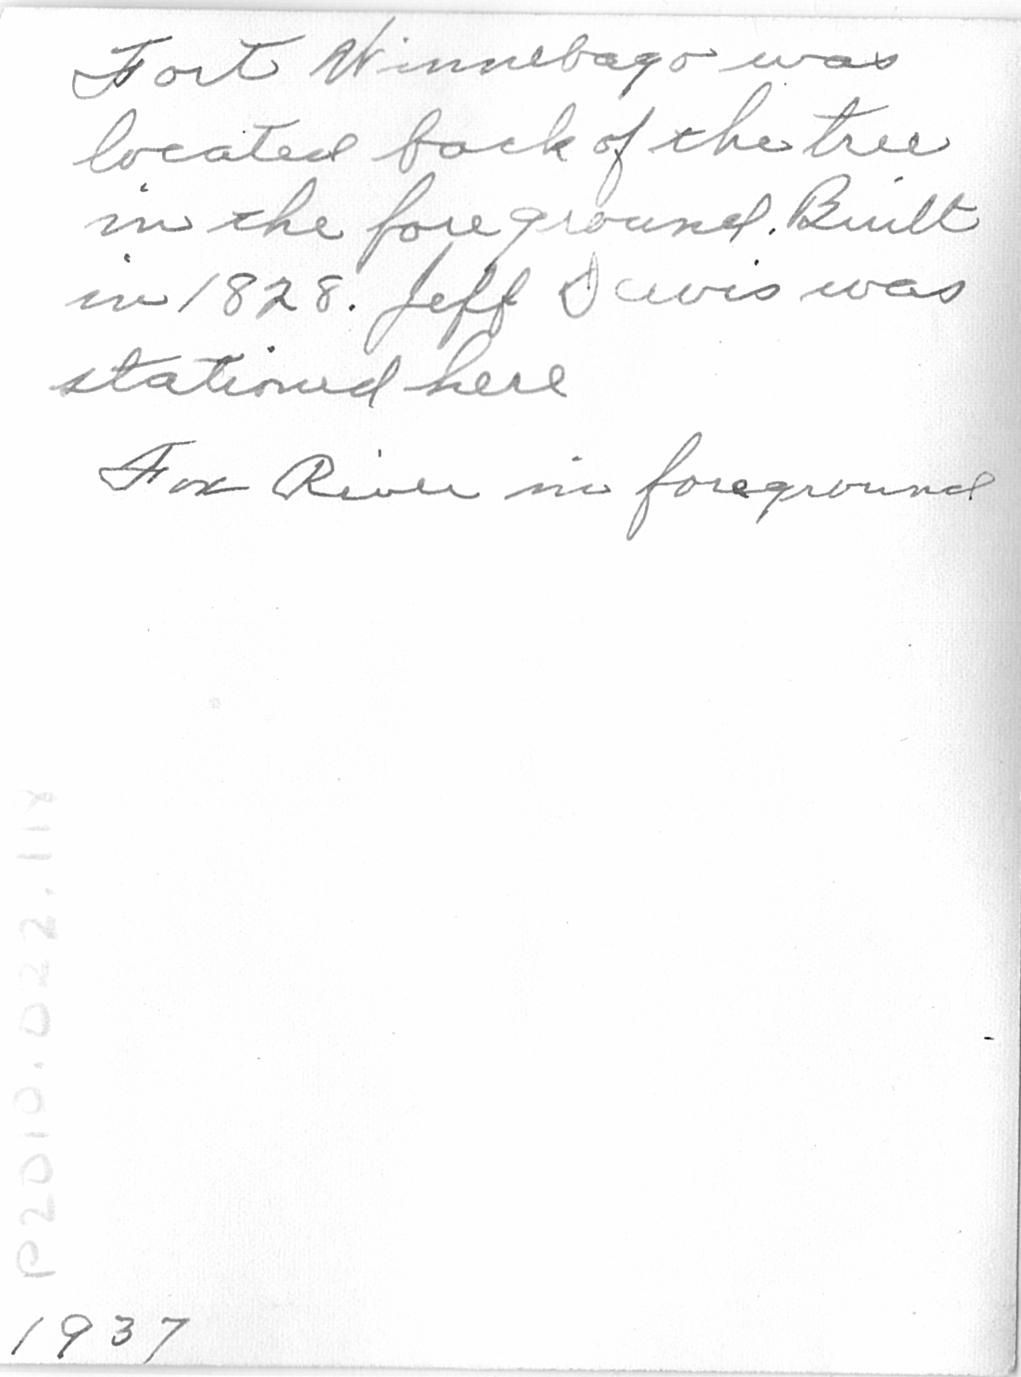 Fort Winnebago was
located back of the tree
in the foreground. Built
in 1828. Jeff Davis was
stationed here
Fox River in foreground
P2010.022.118
1937